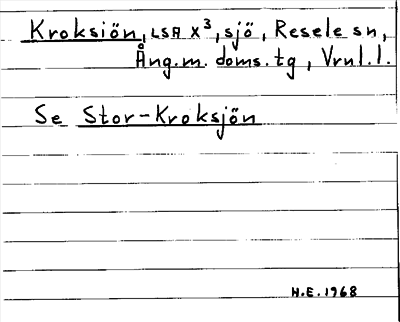 Kroksiön, LSA X³, sjö, Resele sn,
Ång.m. doms.tg, Vrnl.l.
Se Stor-Kroksjön
H.E. 1968